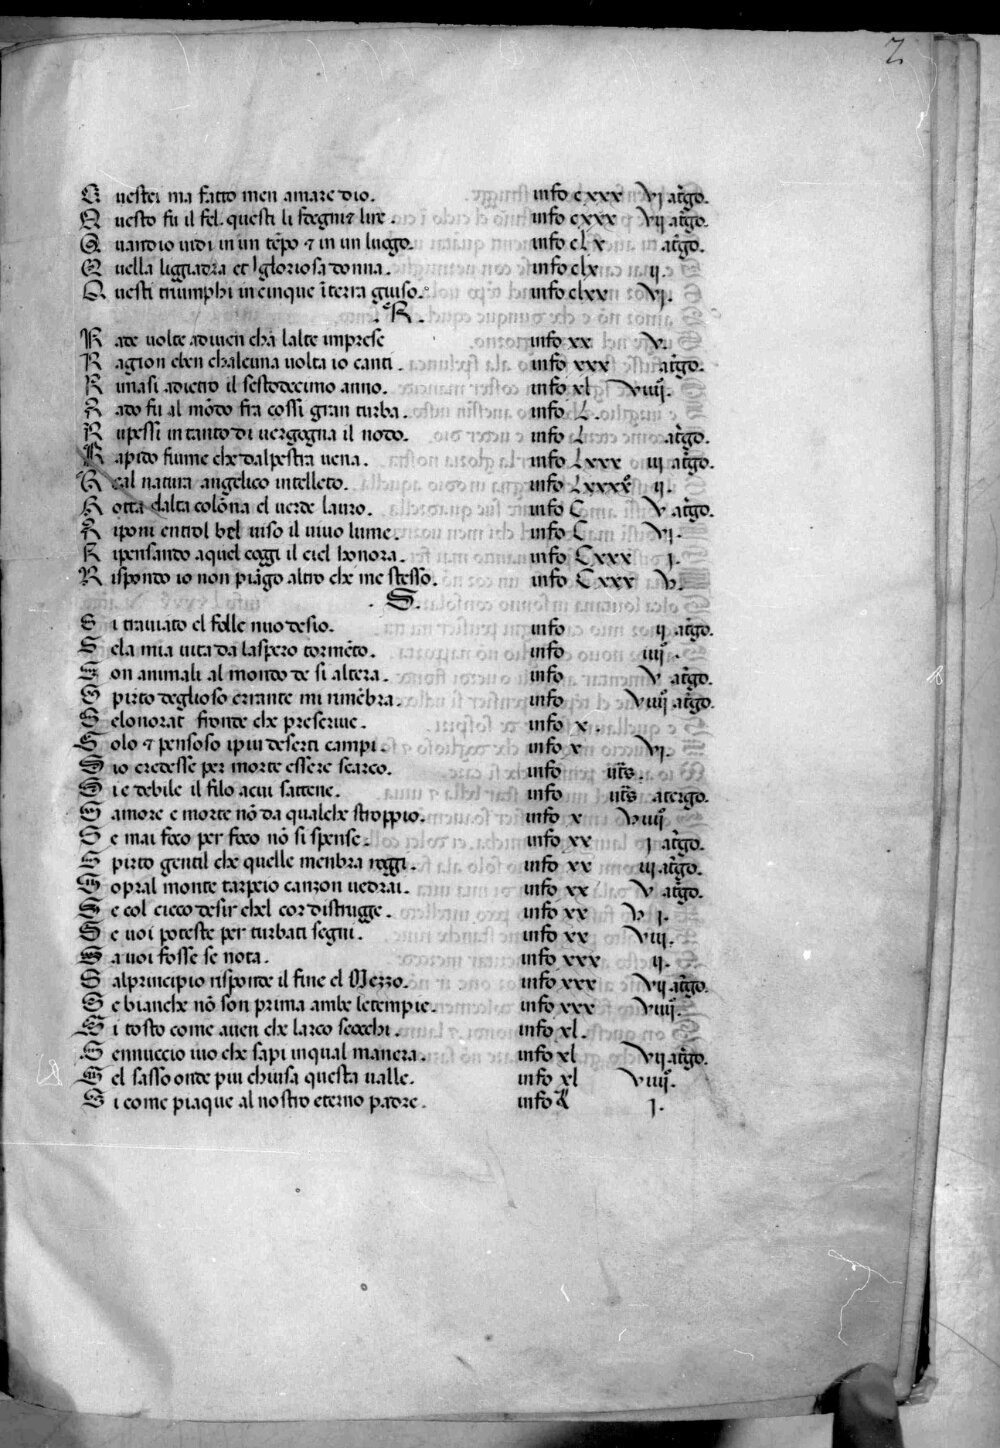 2
Q uestei ma fatto men amare dio. info cxxx vi atgo.
Q uesto fu il fel. questi li sdegni & lire info cxxx vii atgo.
Q uandio vidi in un tēpo & in un luogo. info clx atgo.
Q uella liggiadra et gloriosa donna. info clx ii.
Q uesti triumphi in cinque īterra guiso. info clxx vi.
.R.
R ade volte adiuen cha lalte imprese info xx v.
R agion eben chalcuna volta io canti. info xxx atgo.
R imasi adietro il sestodecimo anno. info xl viiii.
R ado fu al mōdo fra cossi gran turba. info L.
R upessi in tanto di vergogna il nodo. info L atgo.
R apido fiume che dalpestra vena. info Lxxx iii atgo.
R eal natura angelico intelleto. info Lxxxx ii.
R otta e lalta colōna el verde lauro. info C v atgo.
R iponi entrol bel viso il vivo lume. info C vi.
R ipensando aquel coggi il ciel honora. info Cxxx i.
R ispondo io non piāgo altro che me stesso. info Cxxx v.
.S.
S i traviato el folle mio desio. info ii atgo.
S ela mia vita da laspero tormēto. info iiii.
S on animali al mondo de si altera. info v atgo.
S pirto deglioso errante mi rimēbra. info viiii atgo.
S elonorat fronde che prescriue. info x.
S olo & pensoso ipiu deserti campi. info x vi.
S io credesse per morte essere scarco. info
S i e debile il filo acui sattene. info atergo.
S amore e morte nō da qualche stroppio. info x viiii
S e mai foco per foco nō si spense. info xx i atgo.
S pirto gentil che quelle menbra reggi. info xx iii atgo.
S opral monte tarpeio canzon vedrai. info xx v atgo.
S e col cieco desir chel cor distrugge. info xx vi.
S e voi poteste per turbati segni. info xx viii.
S a voi fosse se nota. info xxx ii.
S alprincipio risponde il fine el Mezzo. info xxx vii atgo.
S e bianche nō son prima ambe letempie. info xxx viiii.
S i tosto come aven che larco scocchi. info xl.
S ennuccio vio che sapi inqual manera. info xl vii atgo.
S el sasso onde piu chiusa questa valle. info xl viiii.
S i come piaque al nostro eterno padre. info i.